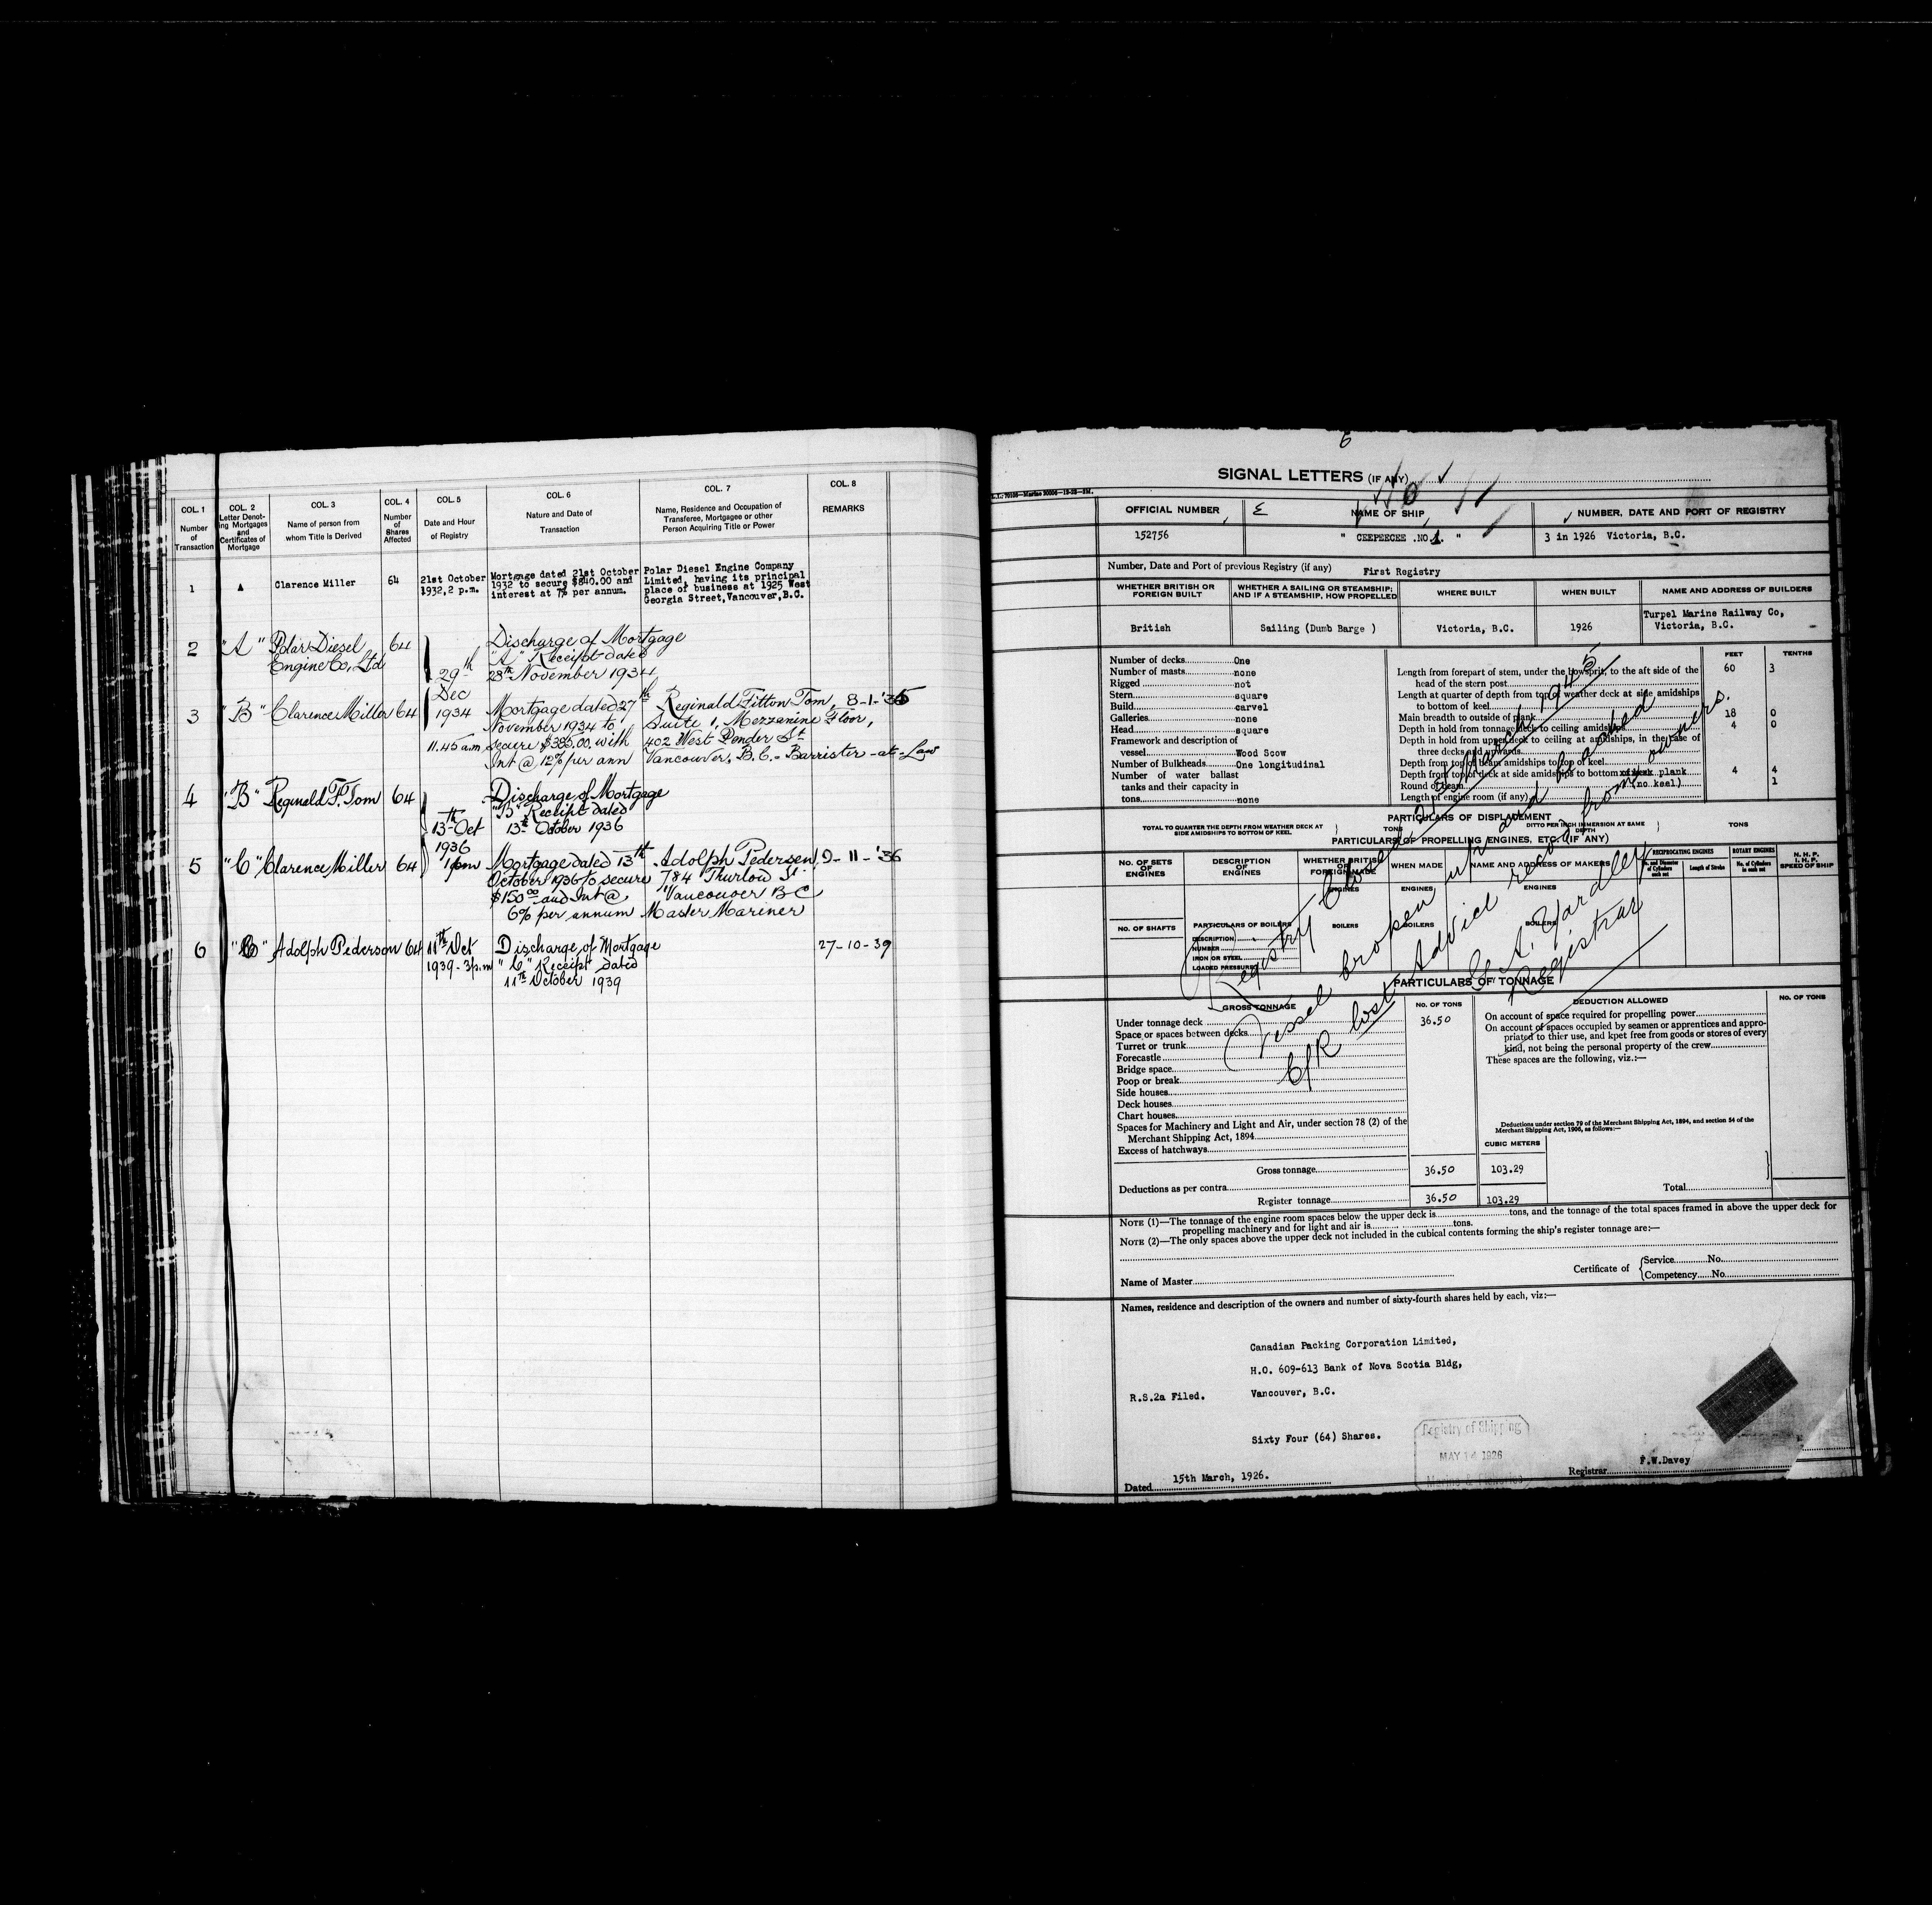 COL. 1
Number
of
Transaction
COL. 2
Letter Denot-
ing Mortgages
and
Certificates of
Mortgage
COL. 3
Name of person from
whom Title is Derived
COL. 4
Number
of
Shares
Affected
COL. 5
Date and Hour
of Registry
COL. 6
Nature and Date of
Transaction
COL. 7
Name, Residence and Occupation of
Transferee, Mortgagee or other
Person Acquiring Title or Power
COL. 8
REMARKS
1
A
Clarence Miller
64
21st October
1932, 2 p.m.
Mortgage dated 21st October
1932 to secure $840.00 and
interest at 7% per annum.
Polar Diesel Engine Company
Limited, having its principal
place of business at 1925 West
Georgia Street, Vancouver, B.C.
2
"A"
Polar Diesel
Engine Co, Ltd
64
29th
Dec
1934
11.45 a.m
Discharge of Mortgage
"A" Receipt dated
28th November 1934
3
"B"
Clarence Miller
64
Mortgage dated 27th
November 1934 to
secure $385.00 with
Int @ 12% per ann
Reginald Fitton Tom,
Suite 1, Mezzanine Floor,
402 West Pender St
Vancouver, B.C. - Barrister-at-Law
8-1-'35
4
"B"
Reginald F. Tom
64
13th Oct
1936
1 pm
Discharge of Mortgage
"B" Receipt dated
13th October 1936
5
"C"
Clarence Miller
64
Mortgage dated 13th
October 1936 to secure
$150.00 and Int @
6% per annum
Adolph Pedersen,
784 Thurlow St.
Vancouver B C
Master Mariner
9-11-'36
6
"C"
Adolph Pederson
64
11th Oct
1939 - 3 p.m
Discharge of Mortgage
"C" Receipt dated
11th October 1939
27-10-39
6
SIGNAL LETTERS (IF ANY)
OFFICIAL NUMBER
152756
NAME OF SHIP
" CEEPEECEE .NO 1. "
NUMBER, DATE AND PORT OF REGISTRY
3 in 1926 Victoria, B.C.
Number, Date and Port of previous Registry (if any)
First Registry
WHETHER BRITISH OR
FOREIGN BUILT
British
WHETHER A SAILING OR STEAMSHIP;
AND IF A STEAMSHIP, HOW PROPELLED
Sailing (Dumb Barge )
WHERE BUILT
Victoria, B.C.
WHEN BUILT
1926
NAME AND ADDRESS OF BUILDERS
Turpel Marine Railway Co,
Victoria, B.C.
Number of decks One
Number of masts none
Rigged not
Stern square
Build carvel
Galleries none
Head square
Framework and description of
vessel Wood Scow
Number of Bulkheads One longitudinal
Number of water ballast
tanks and their capacity in
tons none
FEET
TENTHS
Length from forepart of stem, under the bowsprit, to the aft side of the
head of the stern post 60 3
Length at quarter of depth from top of weather deck at side amidships
to bottom of keel
Main breadth to outside of plank 18 0
Depth in hold from tonnage deck to ceiling amidships 4 0
Depth in hold from upper deck to ceiling at amidships, in the case of
three decks and upwards
Depth from top of beam amidships to top of keel
Depth from top of deck at side amidships to bottom of plank 4 4
Round of beam (no keel) 1
Length of engine room (if any)
PARTICULARS OF DISPLACEMENT
TOTAL TO QUARTER THE DEPTH FROM WEATHER DECK AT
SIDE AMIDSHIPS TO BOTTOM OF KEEL
TONS
DITTO PER INCH IMMERSION AT SAME
DEPTH
TONS
PARTICULARS OF PROPELLING ENGINES, ETC. (IF ANY)
NO. OF SETS
OF
ENGINES
DESCRIPTION
OF
ENGINES
WHETHER BRITISH
OR
FOREIGN MADE
WHEN MADE
NAME AND ADDRESS OF MAKERS
RECIPROCATING ENGINES
No. and Diameter
of Cylinders
in each set
Length of Stroke
ROTARY ENGINES
No. of Cylinders
in each set
N. H. P.
I. H. P.
SPEED OF SHIP
ENGINES
ENGINES
ENGINES
NO. OF SHAFTS
PARTICULARS OF BOILERS
DESCRIPTION
NUMBER
IRON OR STEEL
LOADED PRESSURE
BOILERS
BOILERS
BOILERS
Registry Closed 2 March 1945
Vessel broken up and beached
C/R lost Advice recd from owners.
G. A. Yardley
Registrar
PARTICULARS OF TONNAGE
GROSS TONNAGE
NO. OF TONS
Under tonnage deck 36.50
Space or spaces between decks
Turret or trunk
Forecastle
Bridge space
Poop or break
Side houses
Deck houses
Chart houses
Spaces for Machinery and Light and Air, under section 78 (2) of the
Merchant Shipping Act, 1894
Excess of hatchways
Gross tonnage 36.50 103.29
Deductions as per contra
Register tonnage 36.50 103.29
DEDUCTION ALLOWED
NO. OF TONS
On account of space required for propelling power
On account of spaces occupied by seamen or apprentices and appro-
priated to thier use, and kpet free from goods or stores of every
kind, not being the personal property of the crew
These spaces are the following, viz.:—
Deductions under section 79 of the Merchant Shipping Act, 1894, and section 54 of the
Merchant Shipping Act, 1906, as follows:—
CUBIC METERS
Total
NOTE (1)—The tonnage of the engine room spaces below the upper deck is tons, and the tonnage of the total spaces framed in above the upper deck for
propelling machinery and for light and air is tons.
NOTE (2)—The only spaces above the upper deck not included in the cubical contents forming the ship's register tonnage are:—
Name of Master
Certificate of
Service No.
Competency No.
Names, residence and description of the owners and number of sixty-fourth shares held by each, viz:—
Canadian Packing Corporation Limited,
H.O. 609-613 Bank of Nova Scotia Bldg,
R.S.2a Filed.
Vancouver, B.C.
Sixty Four (64) Shares.
Registry of Shipping
MAY 14 1926
Marine & Fisheries
Dated 15th March, 1926.
Registrar F.W.Davey